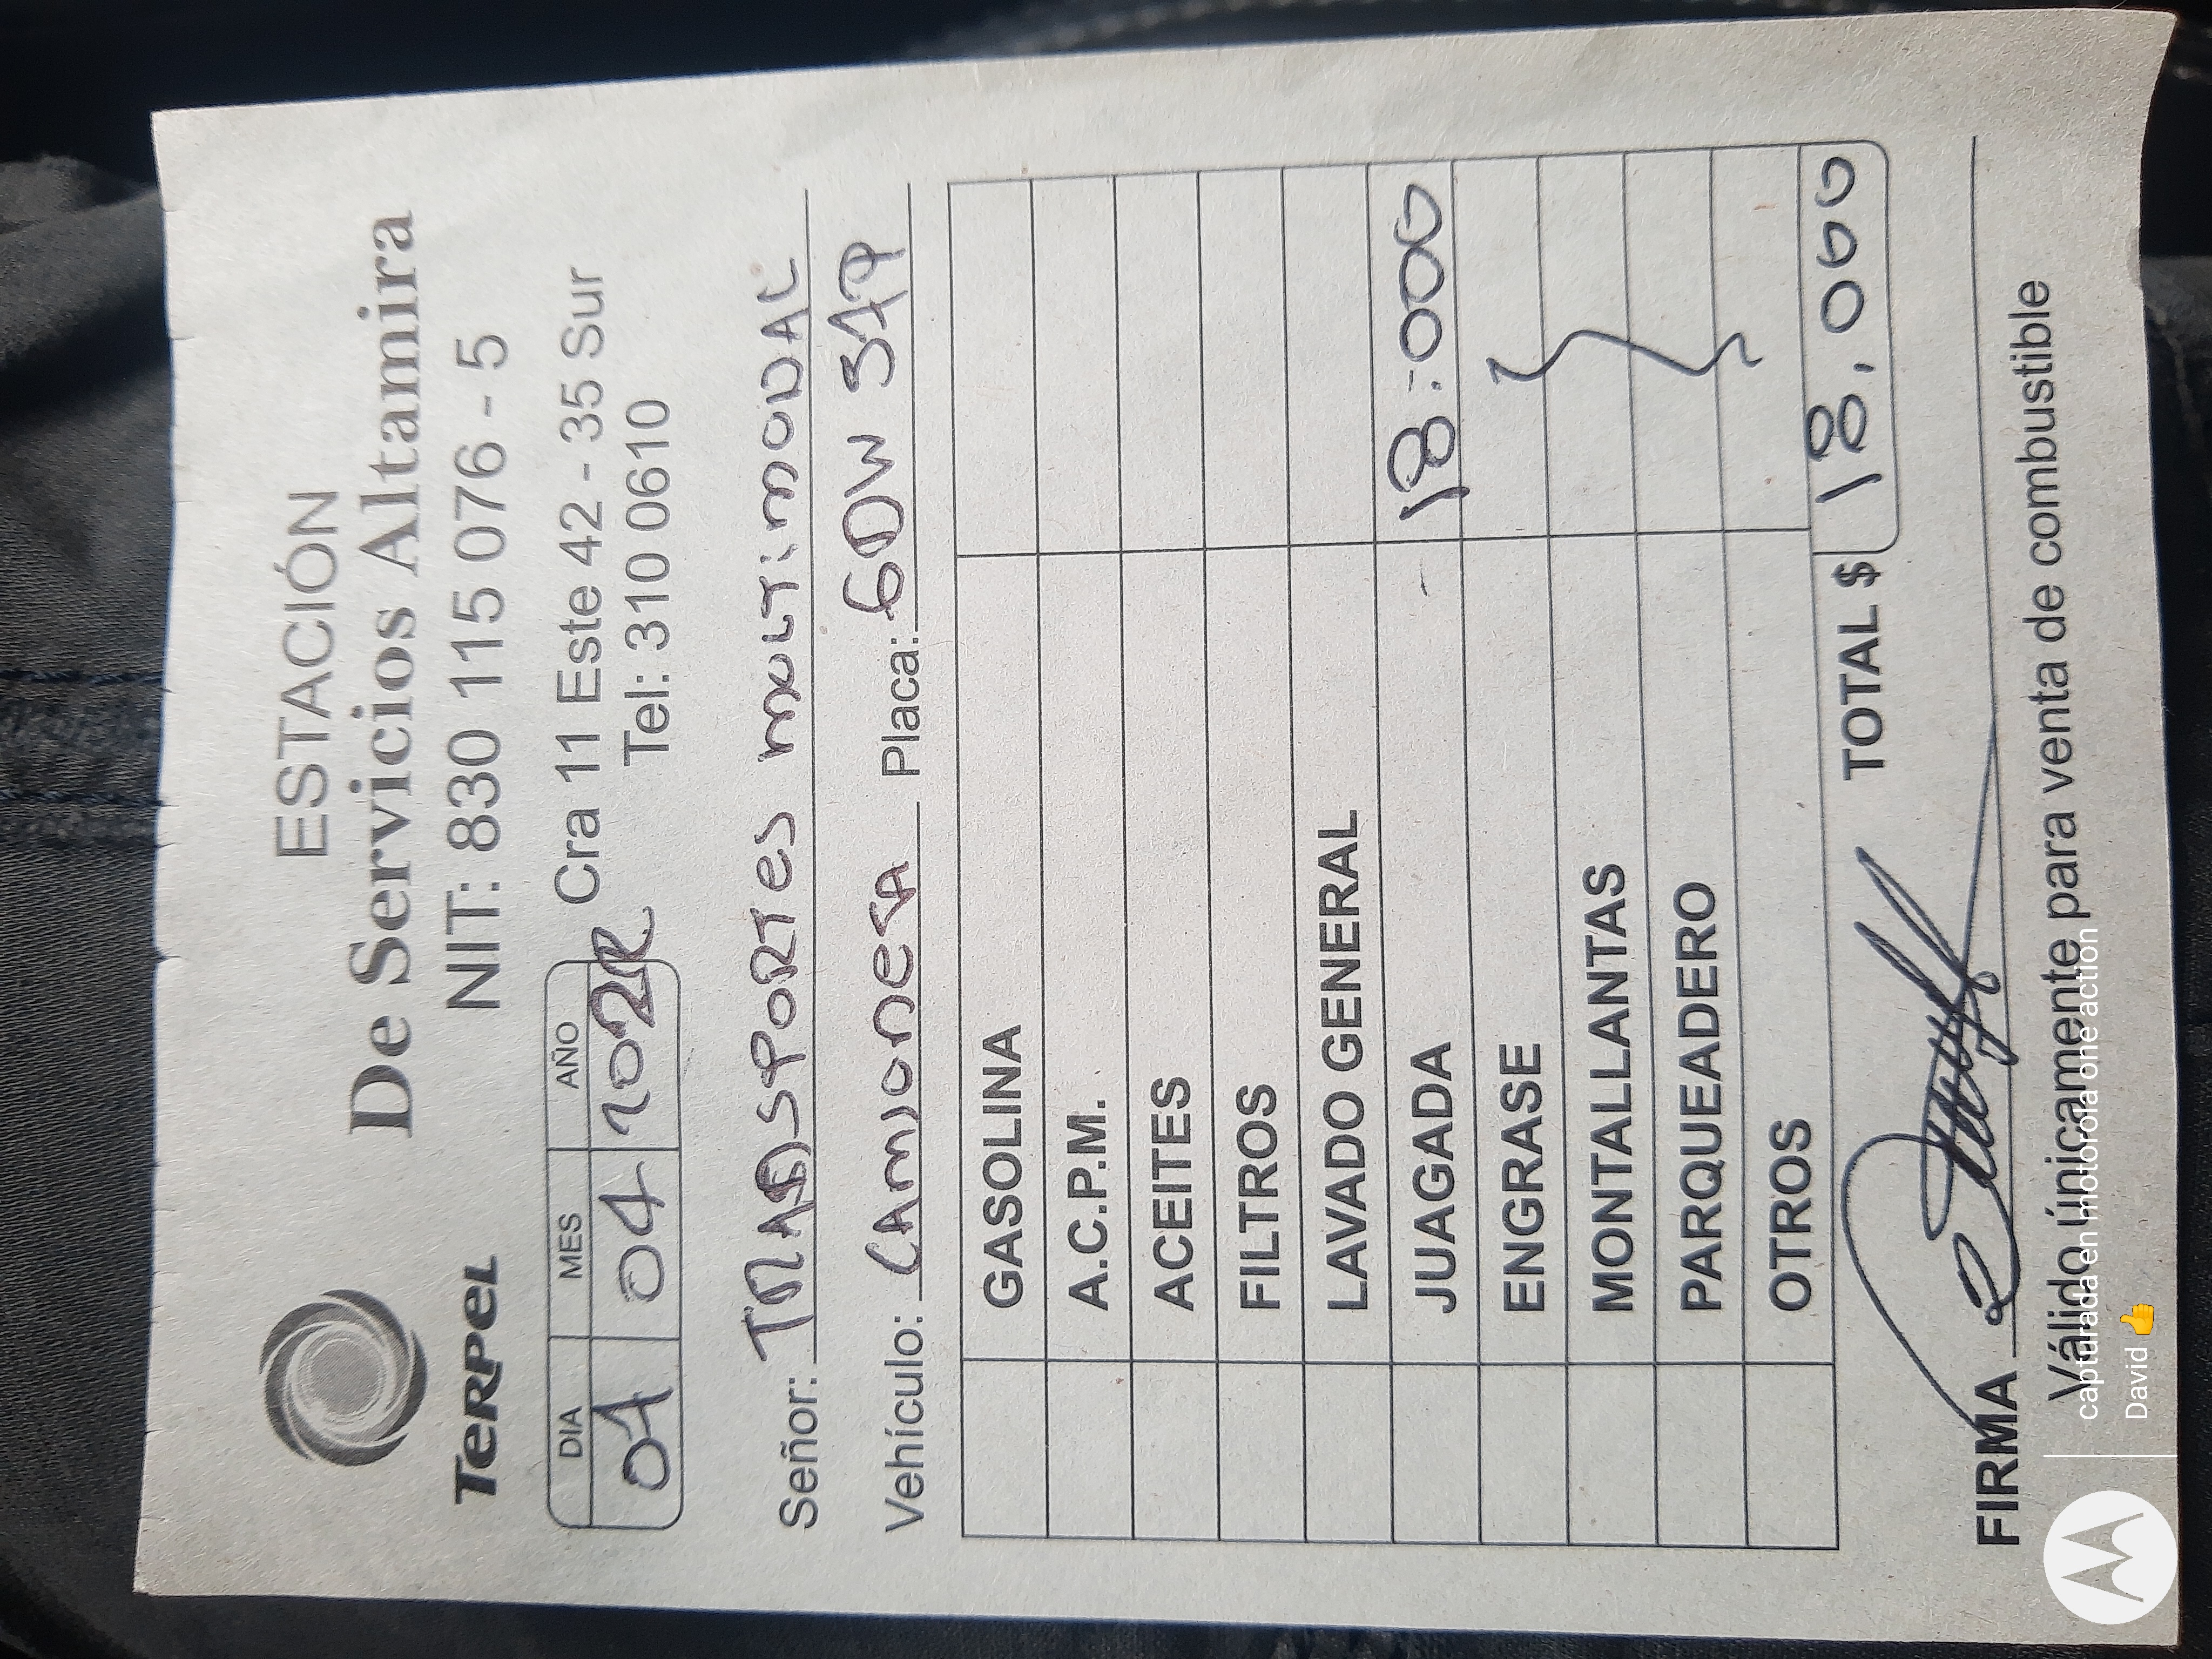 ESTACIÓN
De Servicios Altamira
TERPEL
NIT: 830 115 076 - 5
DIA MES AÑO
01 04 2022
Cra 11 Este 42 - 35 Sur
Tel: 310 0610
Señor: TRANSPORTES MULTIMODAL
Vehículo: CAMIONETA Placa:
GASOLINA
A.C.P.M.
ACEITES
FILTROS
LAVADO GENERAL
JUAGADA 18.000
ENGRASE
MONTALLANTAS
PARQUEADERO
OTROS
TOTAL $ 18.000
FIRMA
Válido únicamente para venta de combustible
capturada en motorola one action
David 👍